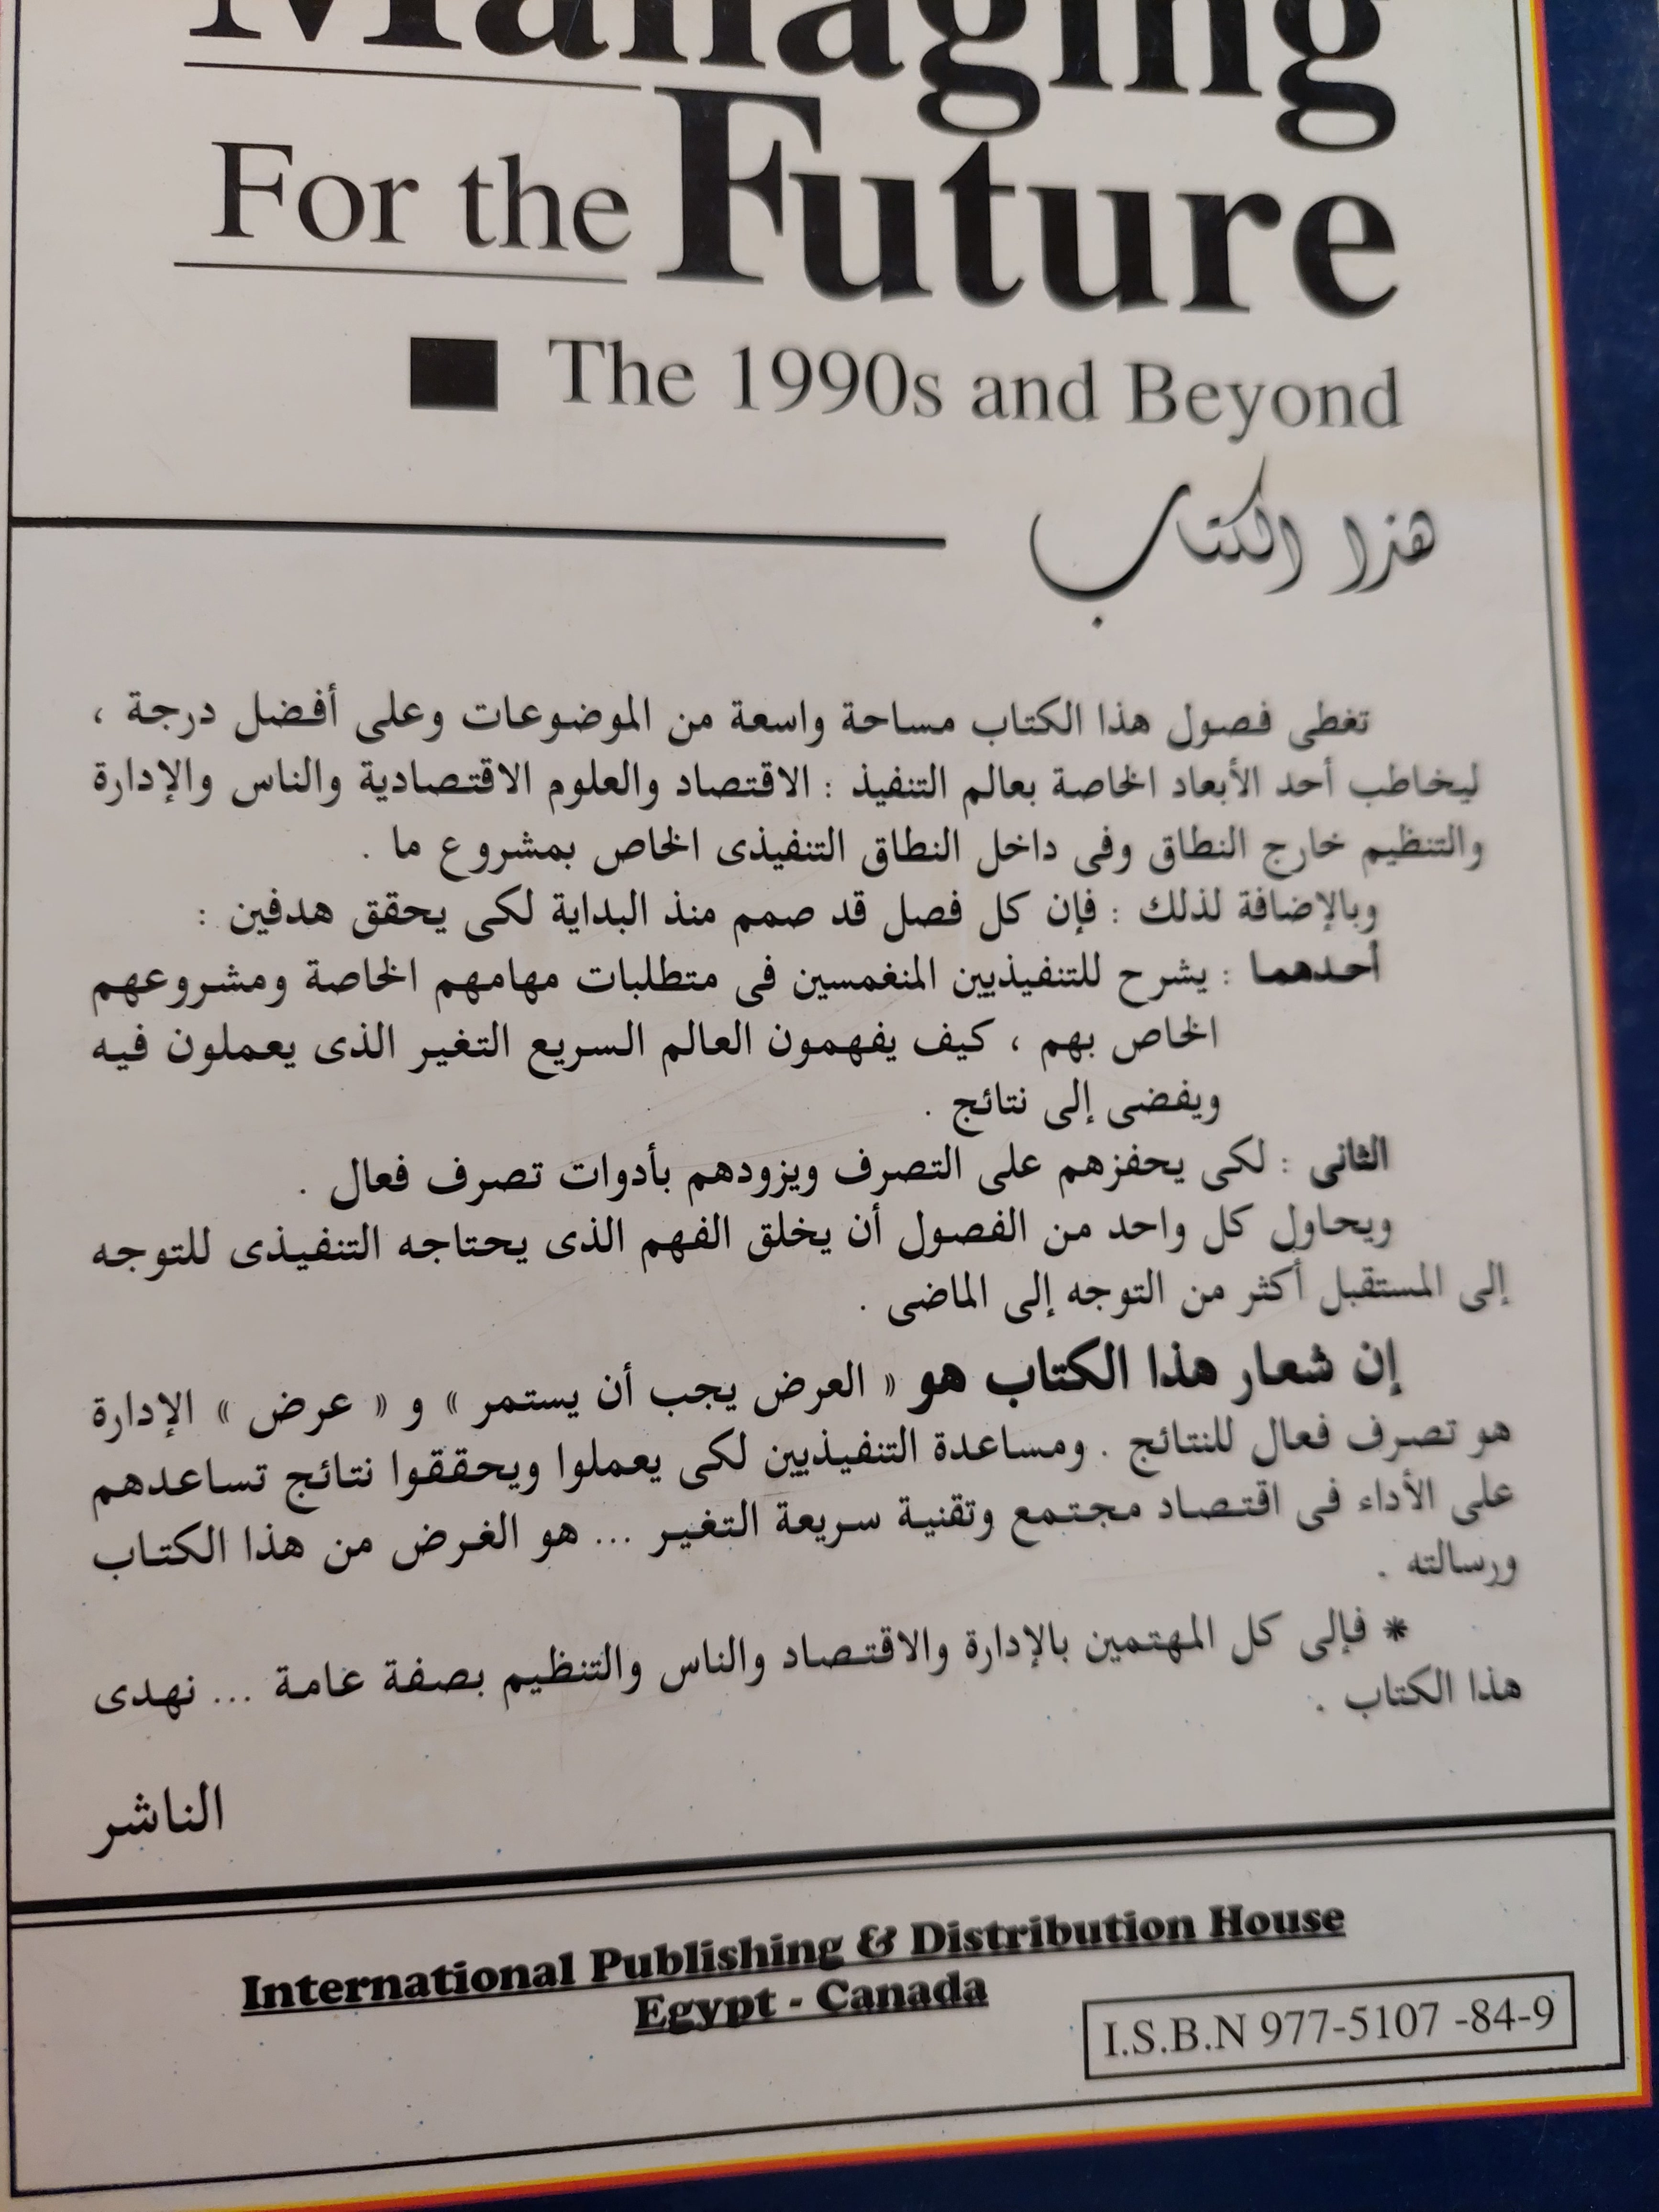 Managing
For the Future
The 1990s and Beyond
هذا الكتاب
تغطى فصول هذا الكتاب مساحة واسعة من الموضوعات وعلى أفضل درجة ،
ليخاطب أحد الأبعاد الخاصة بعالم التنفيذ : الاقتصاد والعلوم الاقتصادية والناس والإدارة
والتنظيم خارج النطاق وفى داخل النطاق التنفيذى الخاص بمشروع ما .
وبالإضافة لذلك : فإن كل فصل قد صمم منذ البداية لكى يحقق هدفين :
أحدهما : يشرح للتنفيذيين المنغمسين فى متطلبات مهامهم الخاصة ومشروعهم
الخاص بهم ، كيف يفهمون العالم السريع التغير الذى يعملون فيه
ويفضى إلى نتائج .
الثانى : لكى يحفزهم على التصرف ويزودهم بأدوات تصرف فعال .
ويحاول كل واحد من الفصول أن يخلق الفهم الذى يحتاجه التنفيذى للتوجه
إلى المستقبل أكثر من التوجه إلى الماضى .
إن شعار هذا الكتاب هو « العرض يجب أن يستمر » و « عرض » الإدارة
هو تصرف فعال للنتائج . ومساعدة التنفيذيين لكى يعملوا ويحققوا نتائج تساعدهم
على الأداء فى اقتصاد مجتمع وتقنية سريعة التغير ... هو الغرض من هذا الكتاب
ورسالته .
* فإلى كل المهتمين بالإدارة والاقتصاد والناس والتنظيم بصفة عامة ... نهدى
هذا الكتاب .
الناشر
International Publishing & Distribution House
Egypt - Canada
I.S.B.N 977-5107 -84-9